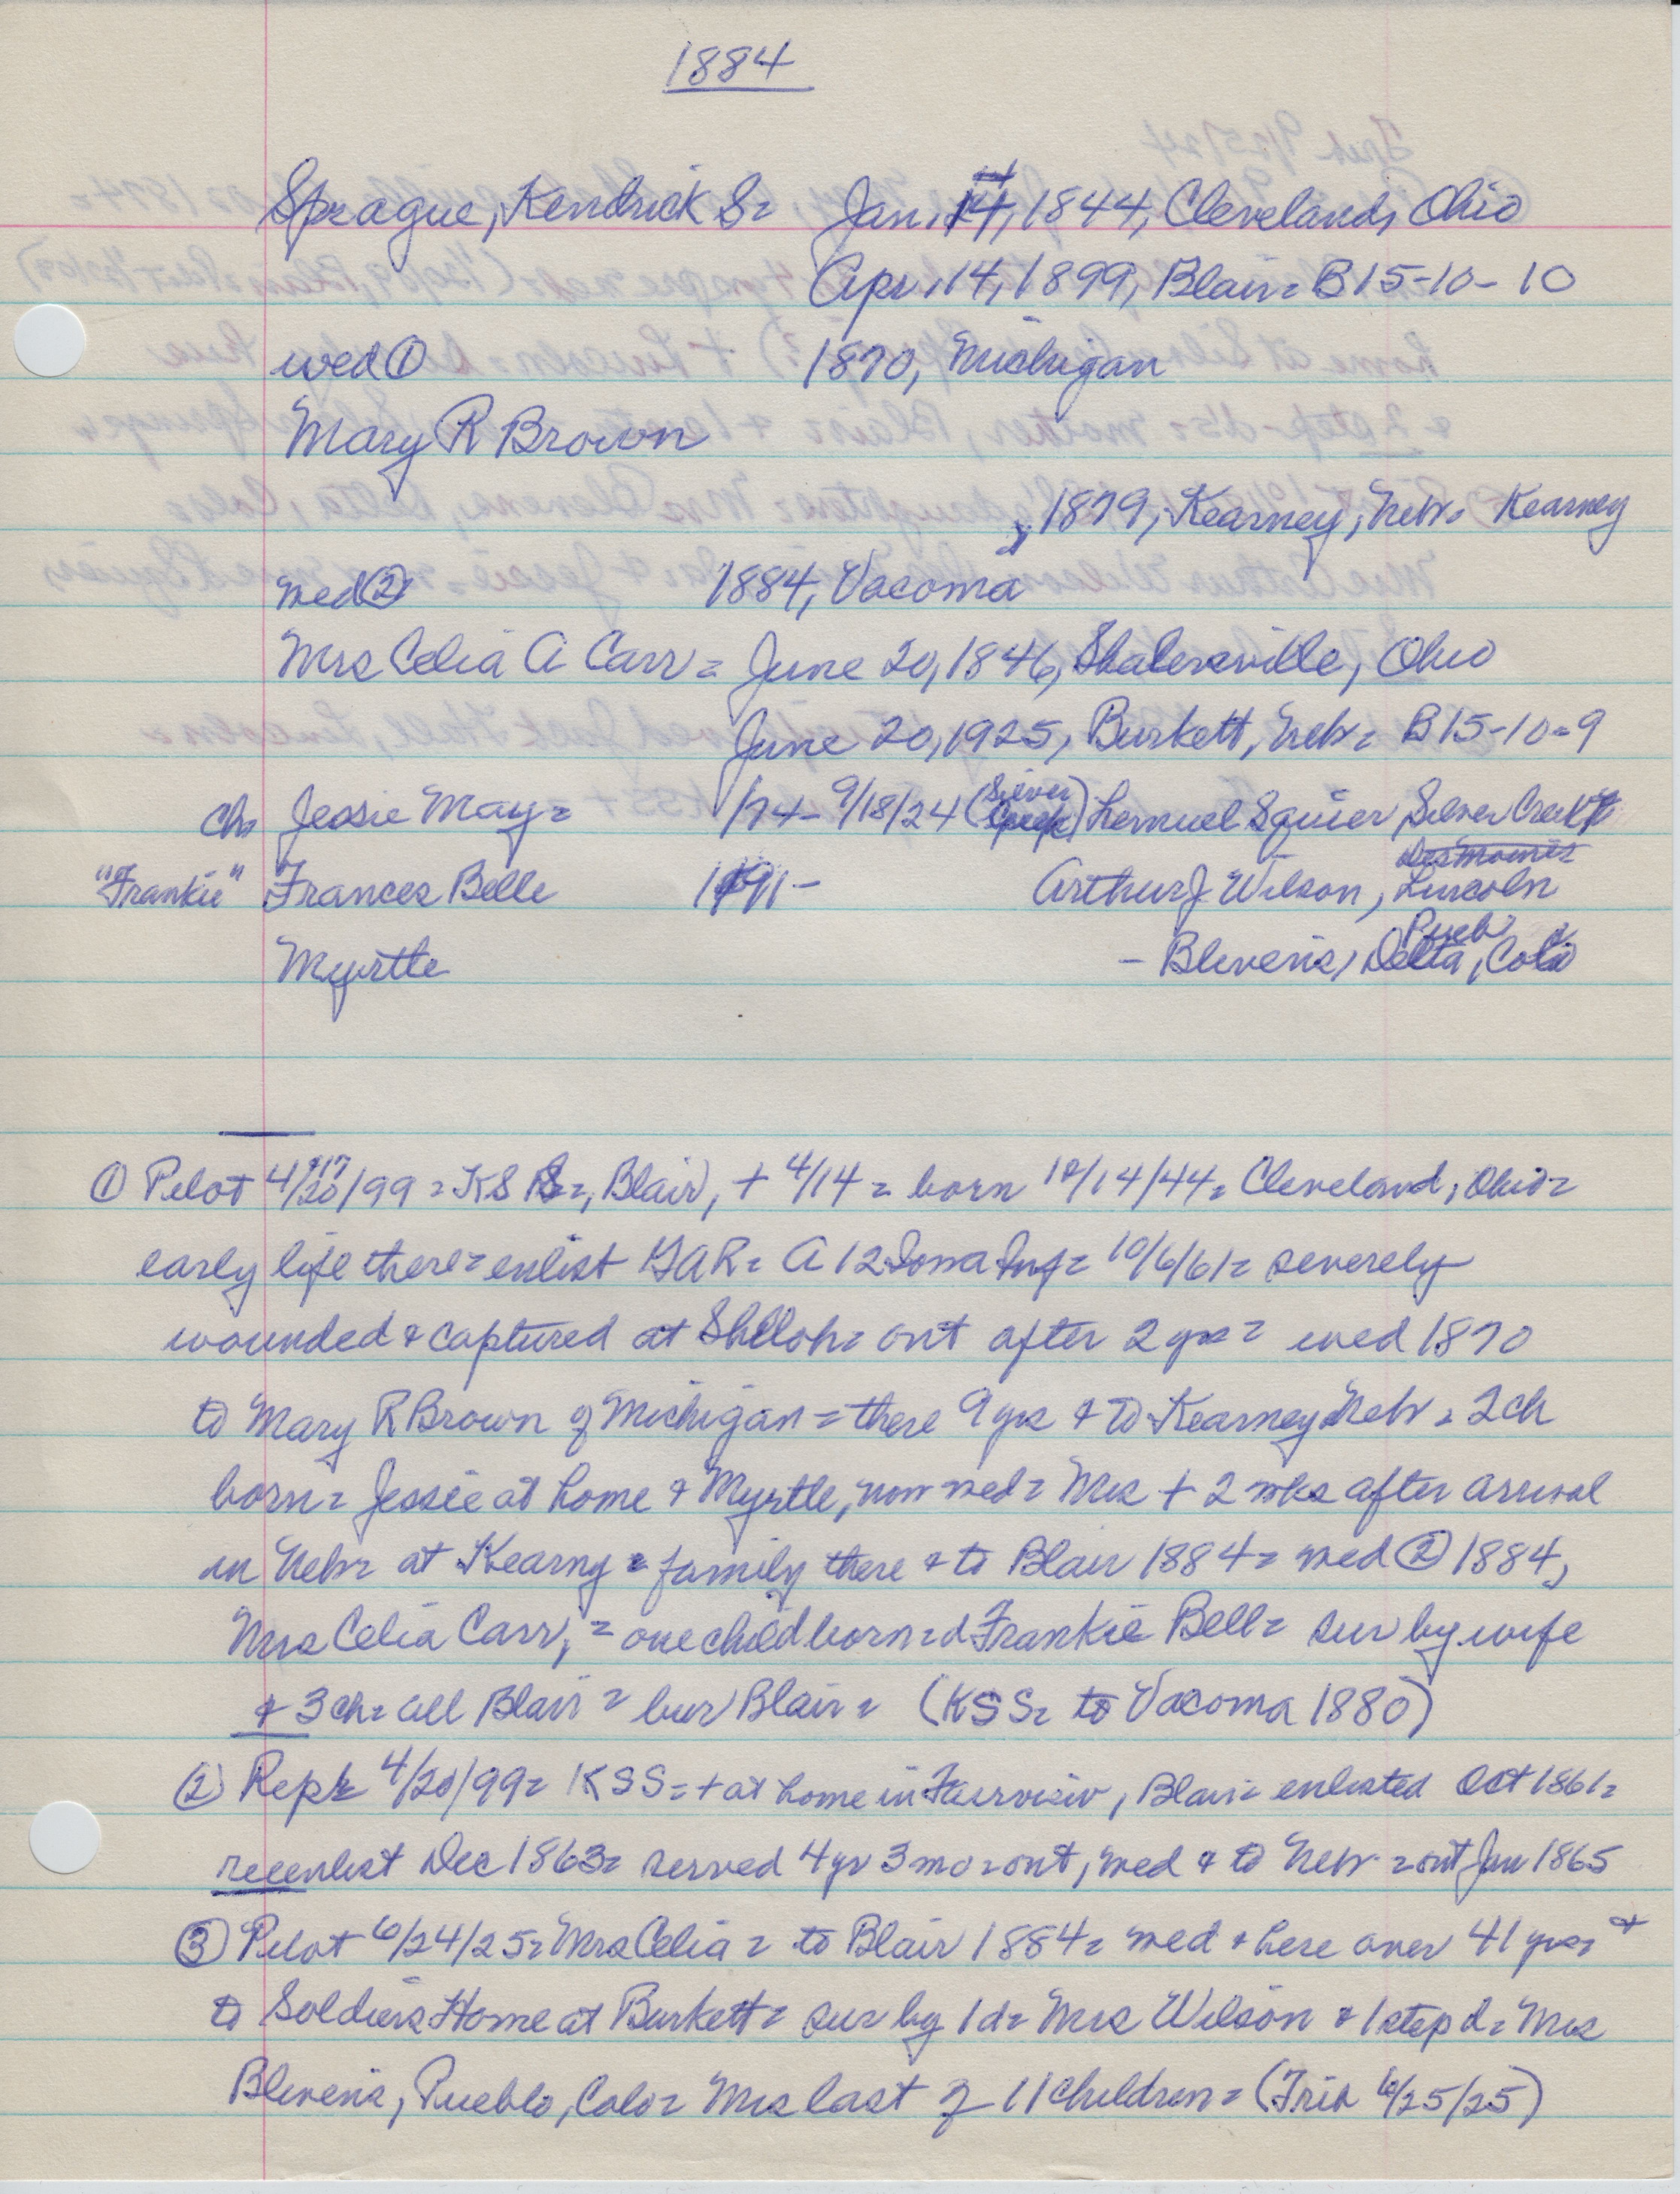 1884
Sprague, Kendrick S = Jan. 14, 1844, Cleveland, Ohio
Apr. 14, 1899, Blair = B15-10-10
wed ① 1870, Michigan
Mary R Brown
, 1879, Kearney, Nebr. Kearney
wed ② 1884, Vacoma
Mrs Celia A Carr = June 20, 1846, Shalersville, Ohio
June 20, 1925, Burkett, Nebr = B15-10-9
ch Jessie May = /74 - 9/18/24 (Silver Creek) Lemuel Squier, Silver Creek
Des Moines
"Frankie" Frances Belle Arthur J Wilson, Lincoln
Pueb
Myrtle - Blevens, Delta, Colo
① Pilot 4/20/99 = KSS =, Blair, + 4/14 = born 10/14/44 = Cleveland, Ohio =
early life there = enlist GAR = A 12 Iowa Inf = 10/6/61 = severely
wounded & captured at Shiloh = out after 2 yrs = wed 1870
to Mary R Brown of Michigan = there 9 yrs & to Kearney Nebr = 2 ch
born = Jessie at home & Myrtle, now wed = Mrs + 2 wks after arrival
in Nebr at Kearny = family there & to Blair 1884 = wed ② 1884,
Mrs Celia Carr, = one child born = d Frankie Bell = sur by wife
& 3 ch = all Blair = bur Blair = (KSS = to Vacoma 1880)
② Repb 4/20/99 = KSS = + at home in Fairview, Blair = enlisted Oct 1861 =
reeenlist Dec 1863 = served 4 yr 3 mo = out, wed & to Nebr = out Jan 1865
③ Pilot 6/24/25 = Mrs Celia = to Blair 1884 = wed & here over 41 yrs = &
to Soldiers Home at Burkett = sur by 1 d = Mrs Wilson & 1 step d = Mrs
Blevens, Pueblo, Colo = Mrs last of 11 children = (Trib 6/25/25)